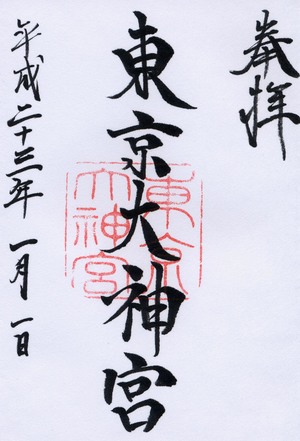 奉拝
東京大神宮
東京大神宮
平成二十三年 一月 一日